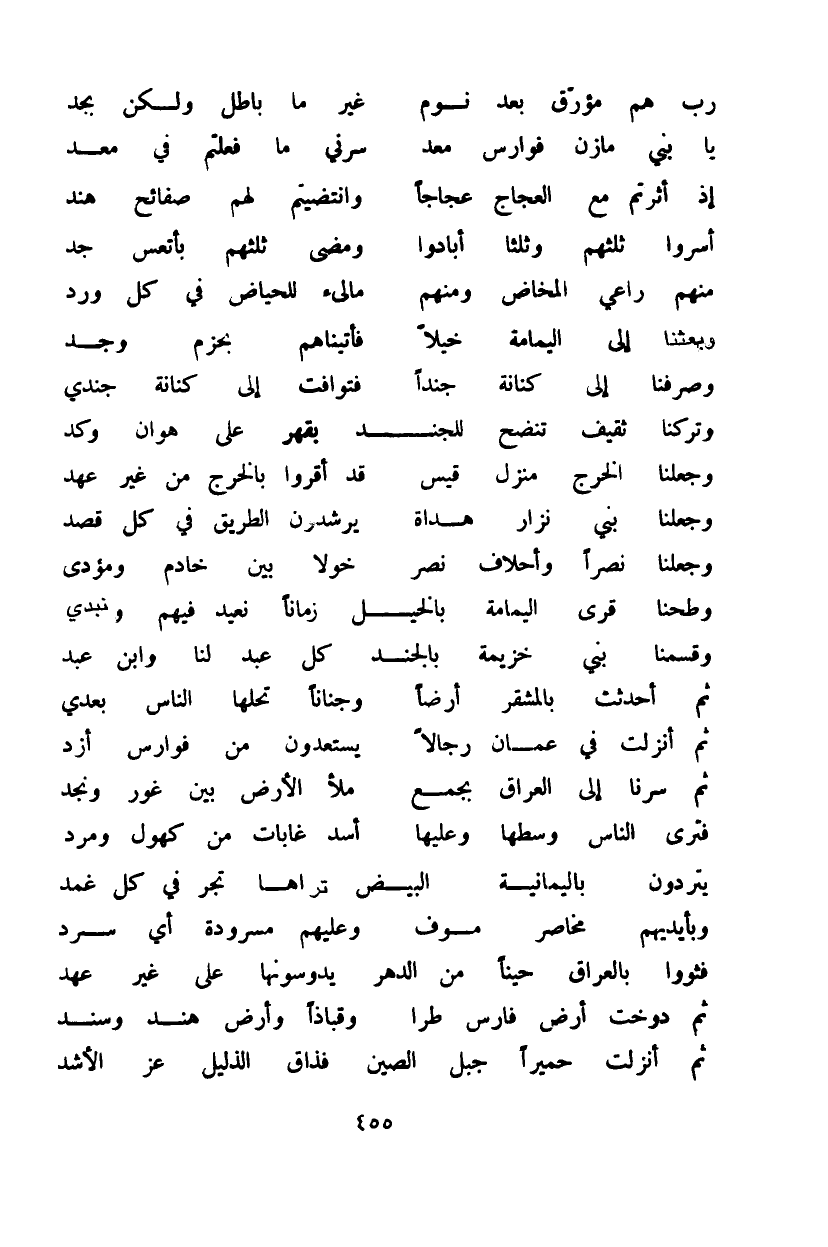 رب هم مؤرّق بعد نوم غير ما باطل ولكن بجد
يا بني مازن فوارس معد سرني ما فعلتم في معد
إذ أثرتم مع العجاج عجاجاً وانتضيتم لهم صفائح هند
أسروا ثلثهم وثلثا أبادوا ومضى ثلثهم بأتعس جد
منهم راعي المخاض ومنهم مالىء للحياض في كل ورد
وبعثنا إلى اليمامة خيلاً فأتيناهم بحزم وجد
وصرفنا إلى كنانة جنداً فتوافت إلى كنانة جندي
وتركنا ثقيف تنضح للجند بقهر على هوان وكد
وجعلنا الخرج منزل قيس قد أقروا بالخرج من غير عهد
وجعلنا بني نزار هداة يرشدون الطريق في كل قصد
وجعلنا نصراً وأحلاف نصر خولا بين خادم ومؤدى
وطحنا قرى اليمامة بالخيل زماناً نعيد فيهم ونبدي
وقسمنا بني خزيمة بالجند كل عبد لنا وابن عبد
ثم أحدثت بالمشقر أرضاً وجناناً تحلها الناس بعدي
ثم أنزلت في عمان رجالاً يستعدون من فوارس أزد
ثم سرنا إلى العراق بجمع ملأ الأرض بين غور ونجد
فترى الناس وسطها وعليها أسد غابات من كهول ومرد
يتردون باليمانية البيض تراها تجر في كل غمد
وبأيديهم مخاصر موف وعليهم مسرودة أي سرد
فثووا بالعراق حيناً من الدهر يدوسونها على غير عهد
ثم دوخت أرض فارس طرا وقباذاً وأرض هند وسند
ثم أنزلت حميراً جبل الصين فذاق الذليل عز الأشد
٤٥٥